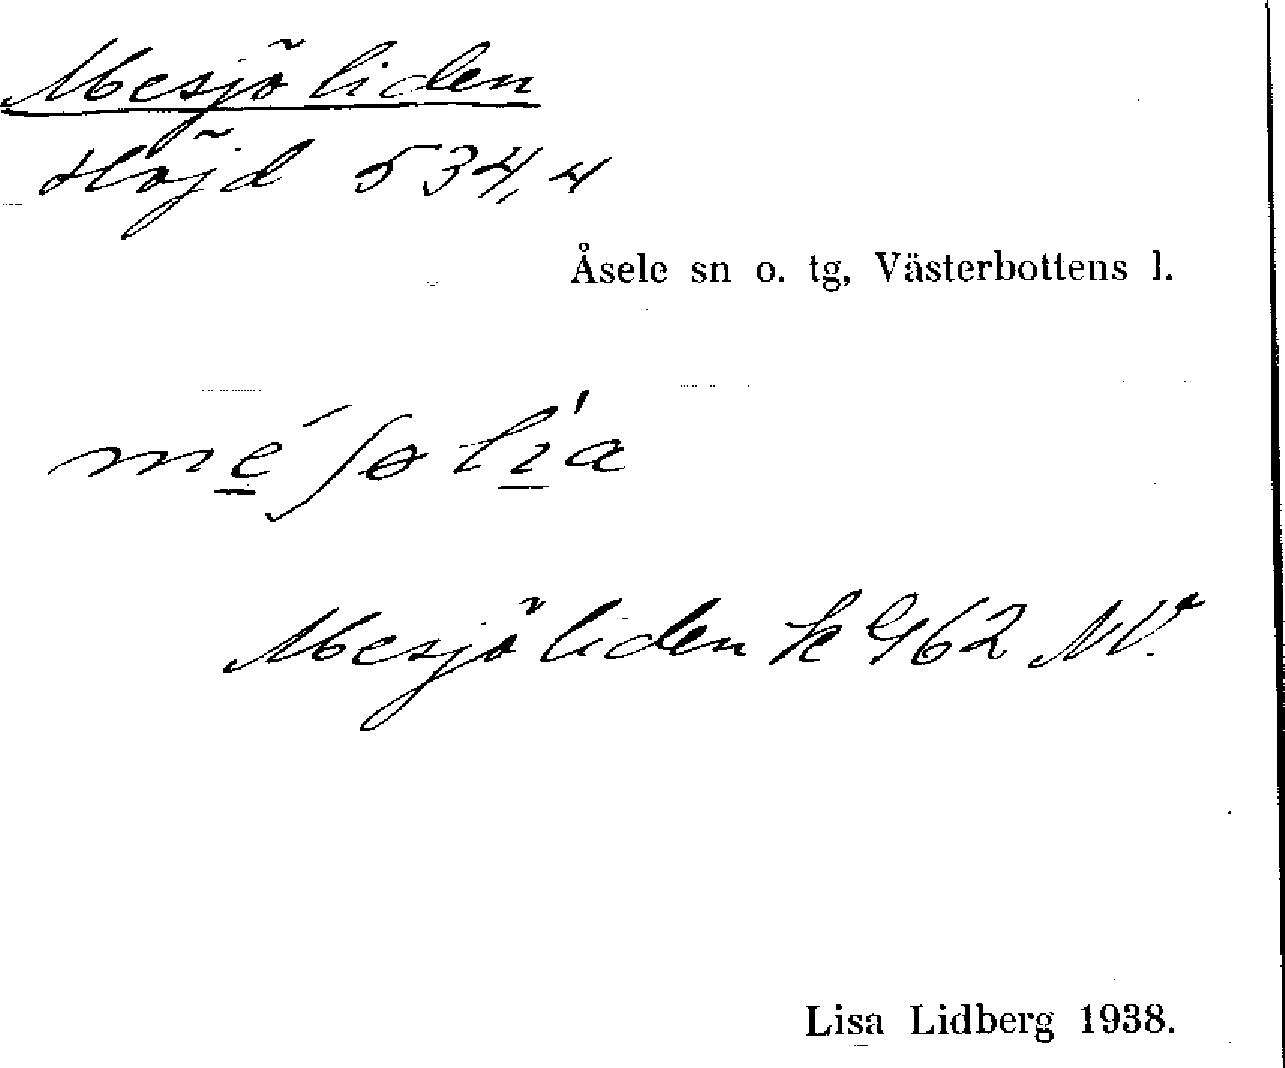 Mesjöliden
Höjd 534,4
Åsele sn o. tg, Västerbottens l.
me̱´ʃø li̱'a
Mesjöliden k 962 NV.
Lisa Lidberg 1938.